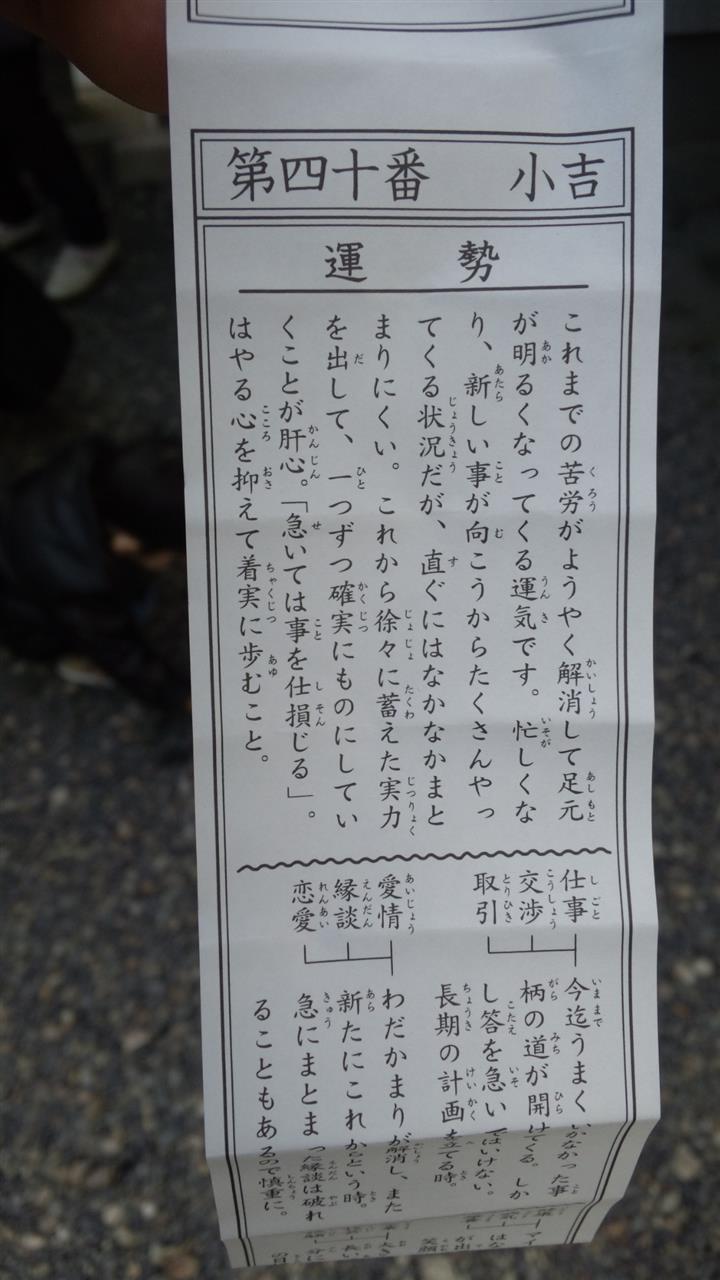 第四十番　小吉
運勢
これまでの苦労がようやく解消して足元
が明るくなってくる運気です。忙しくな
り、新しい事が向こうからたくさんやっ
てくる状況だが、直ぐにはなかなかまと
まりにくい。これから徐々に蓄えた実力
を出して、一つずつ確実にものにしてい
くことが肝心。「急いては事を仕損じる」。
はやる心を抑えて着実に歩むこと。
仕事
交渉
取引
今迄うまくいかなかった事
柄の道が開けてくる。しか
し答を急いではいけない。
長期の計画を立てる時。
愛情
縁談
恋愛
わだかまりが解消し、また
新たにこれからという時。
急にまとまった縁談は破れ
ることもあるので慎重に。